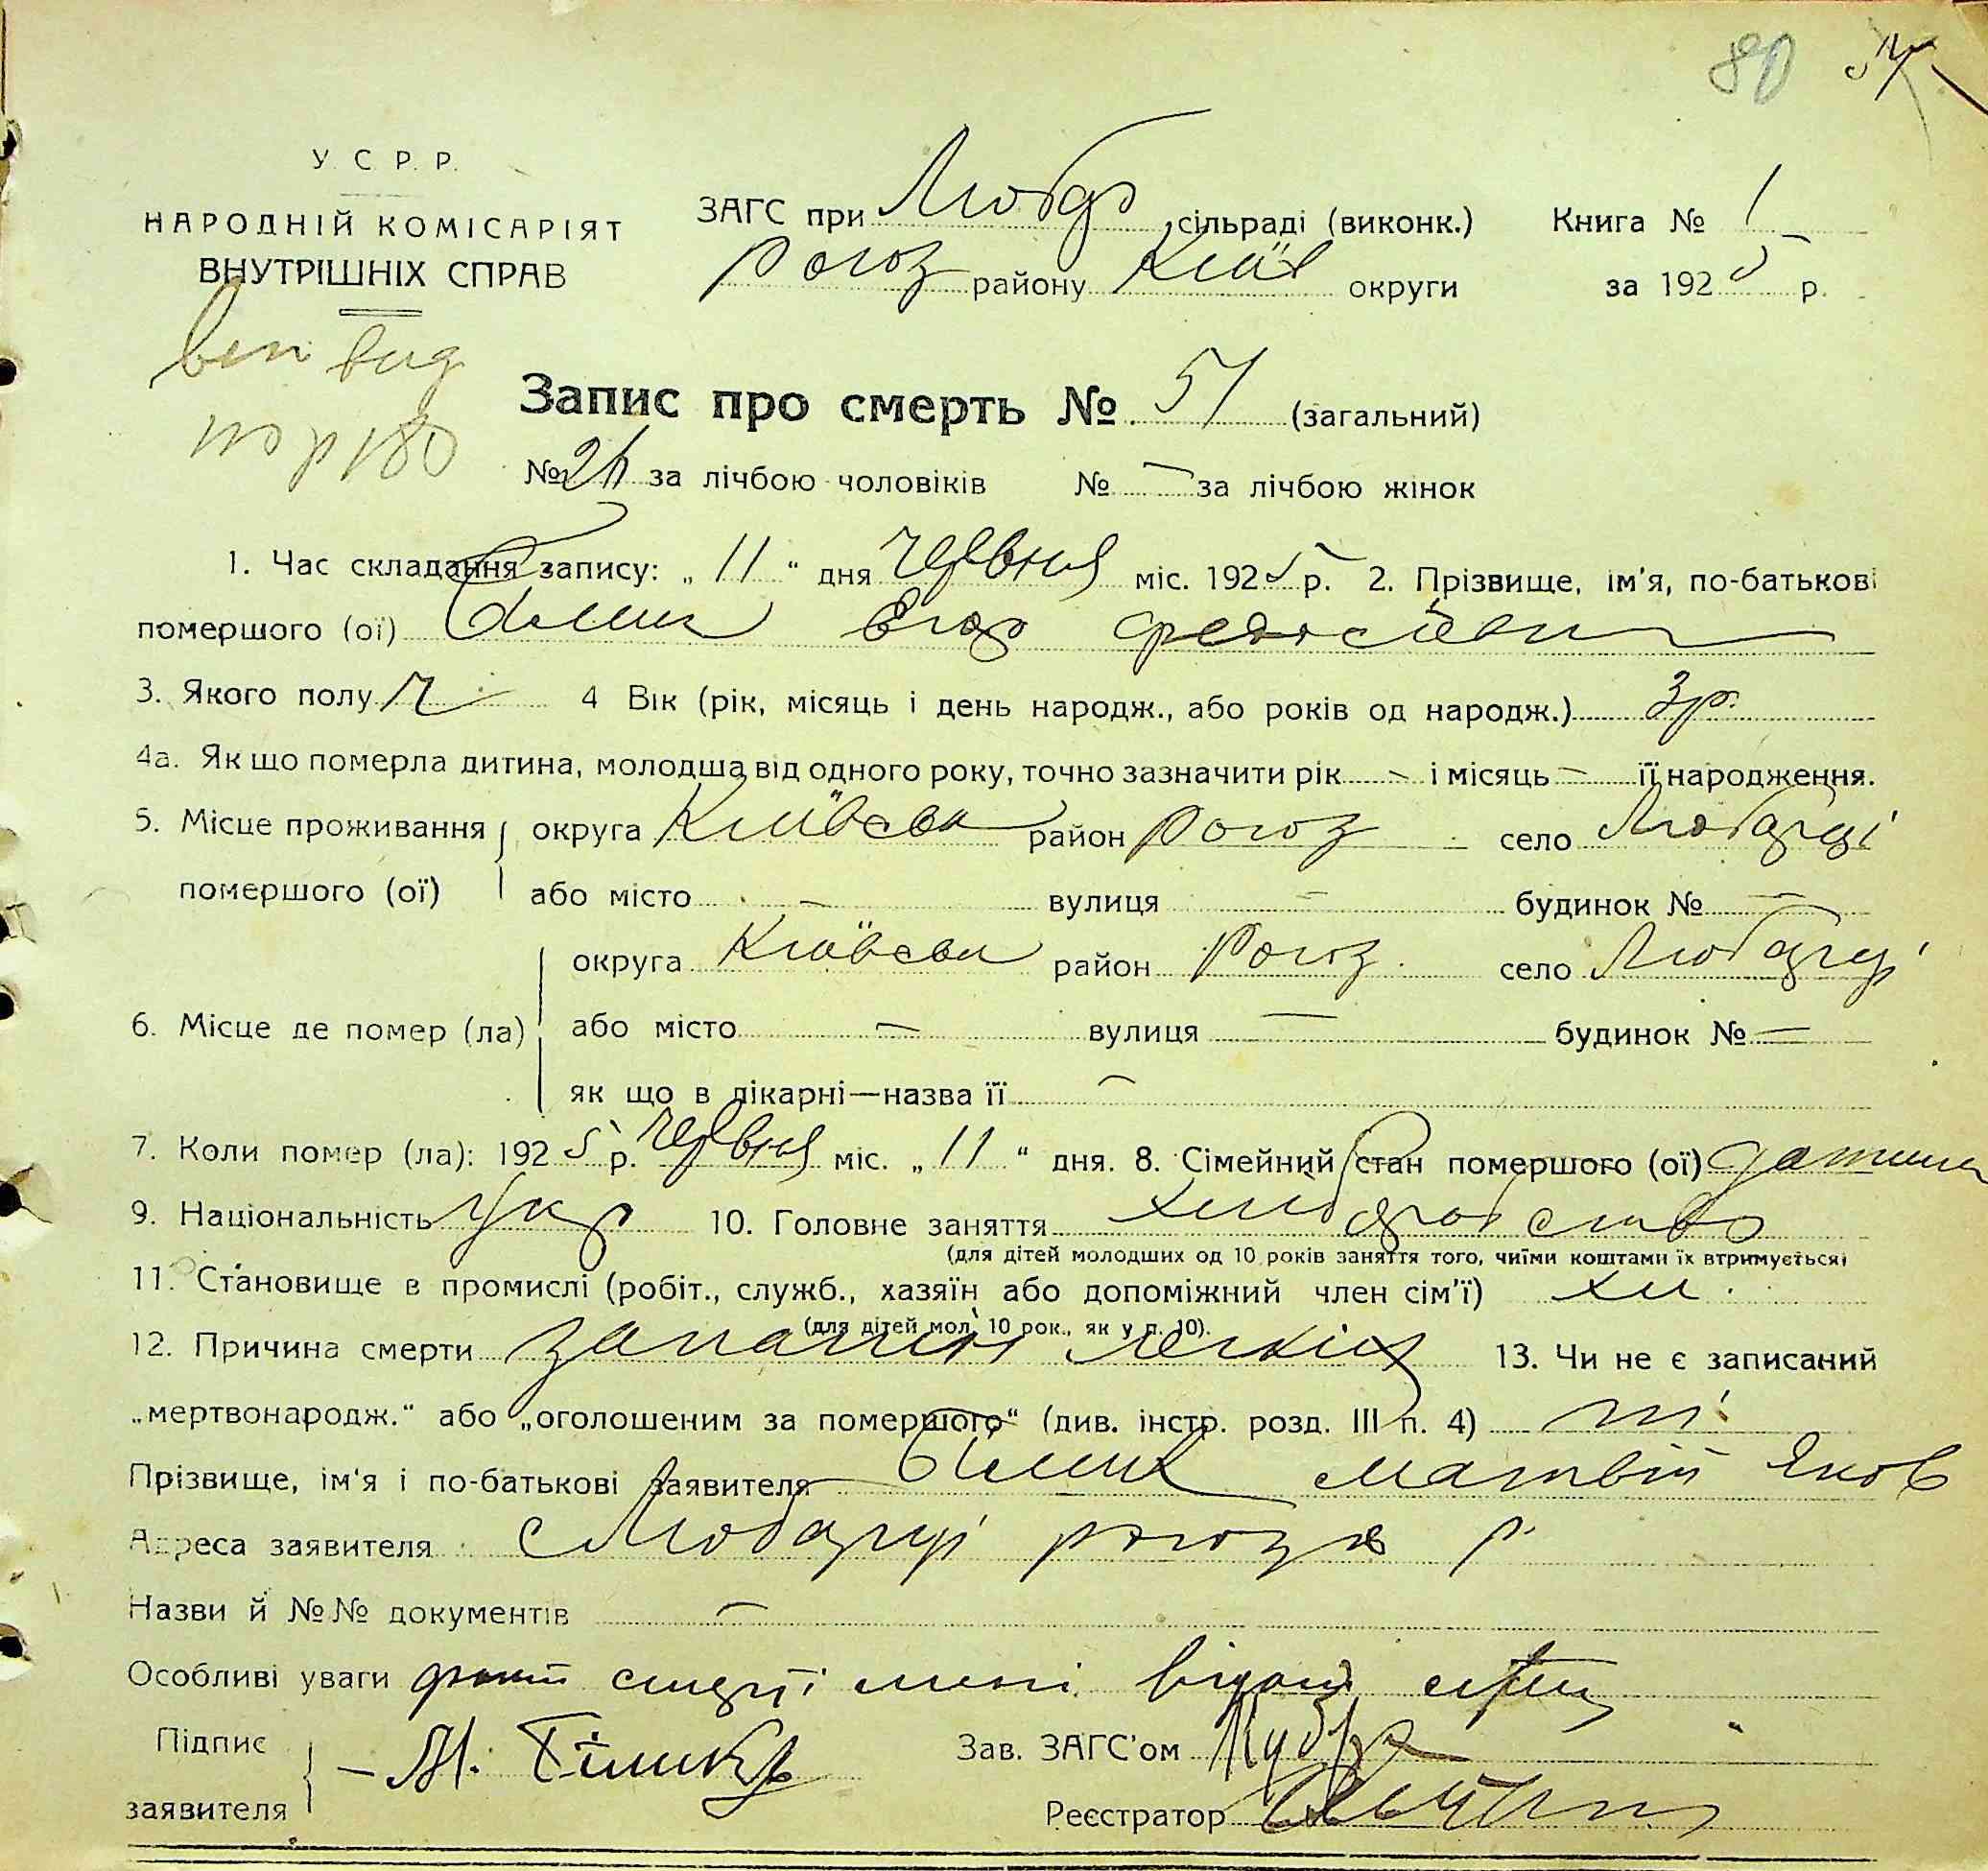 80
У. С. Р. Р.
НАРОДНІЙ КОМІСАРІЯТ
ВНУТРІШНІХ СПРАВ
ЗАГС при Любар сільраді (виконк.) Книга № 1
Рогоз району Київ округи за 1925 р.
Запис про смерть № 51 (загальний)
№ за лічбою чоловіків № — за лічбою жінок
1. Час складання запису: „ 11 “ дня червня міс. 1925 р. 2. Прізвище, ім'я, по-батькові
помершого (ої) Білик Егор Федосієви
3. Якого полу ч 4 Вік (рік, місяць і день народж., або років од народж.) 3 р.
4а. Як що померла дитина, молодша від одного року, точно зазначити рік — і місяць — її народження.
5. Місце проживання округа Київськ район Рогоз село Любарці
помершого (ої) або місто — вулиця — будинок № —
округа Київськ район Рогоз. село Любарці
6. Місце де помер (ла) або місто — вулиця — будинок № —
як що в лікарні—назва її —
7. Коли помер (ла): 1925 р. червня міс. „ 11 “ дня. 8. Сімейний стан помершого (ої) дитина
9. Національність Укр 10. Головне заняття хліборобство
(для дітей молодших од 10 років заняття того, чиїми коштами їх втримується)
11. Становище в промислі (робіт., служб., хазяїн або допоміжний член сім'ї)
(для дітей мол. 10 рок., як у п. 10).
12. Причина смерти запалення легких 13. Чи не є записаний
„мертвонародж.“ або „оголошеним за помершого“ (див. інстр. розд. III п. 4) ні
Прізвище, ім'я і по-батькові заявителя Білик Матвій Яков
Адреса заявителя с Любарці рогозів р.
Назви й №№ документів —
Особливі уваги факт смерті мені відомий
Підпис
заявителя — М. Білик
Зав. ЗАГС'ом
Реєстратор